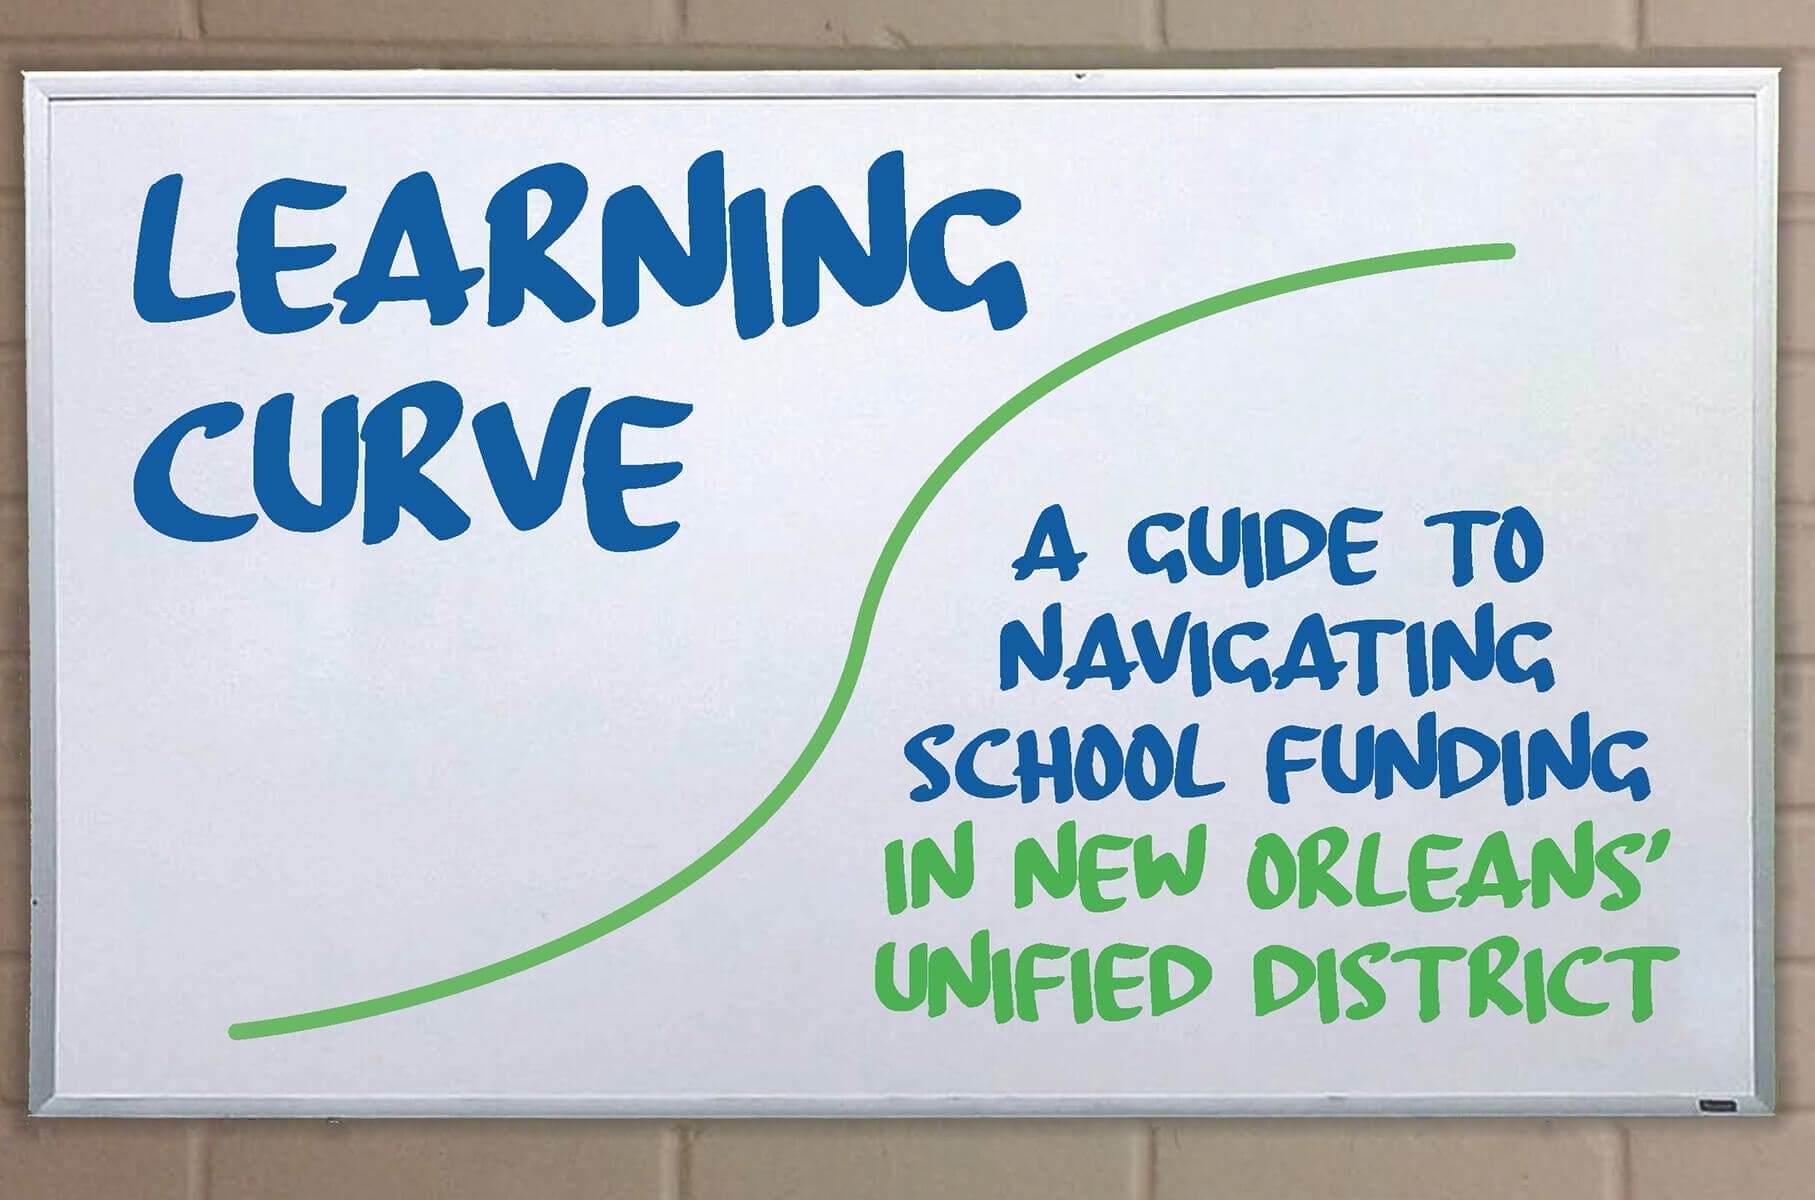 LEARNING
CURVE
A GUIDE TO
NAVIGATING
SCHOOL FUNDING
IN NEW ORLEANS'
UNIFIED DISTRICT